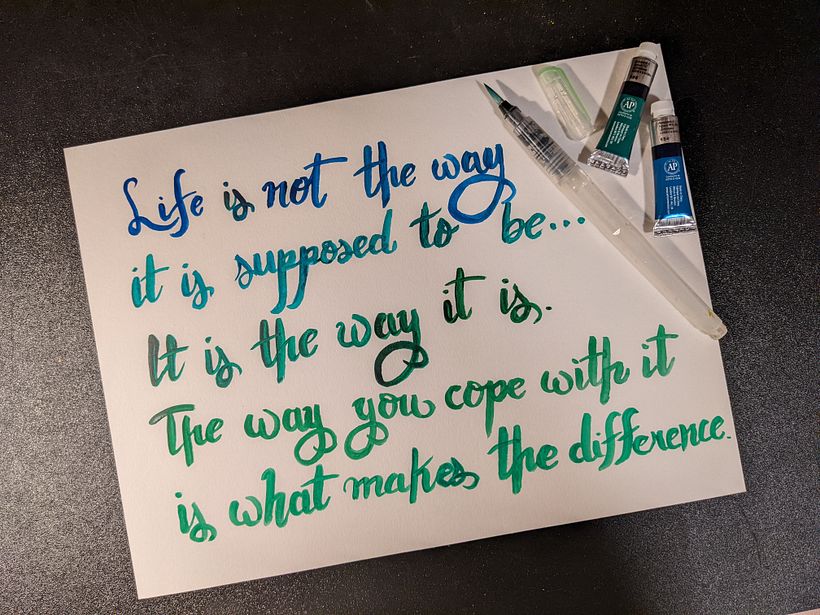 Life is not the way
it is supposed to be...
It is the way it is.
The way you cope with it
is what makes the difference.
AP
AP